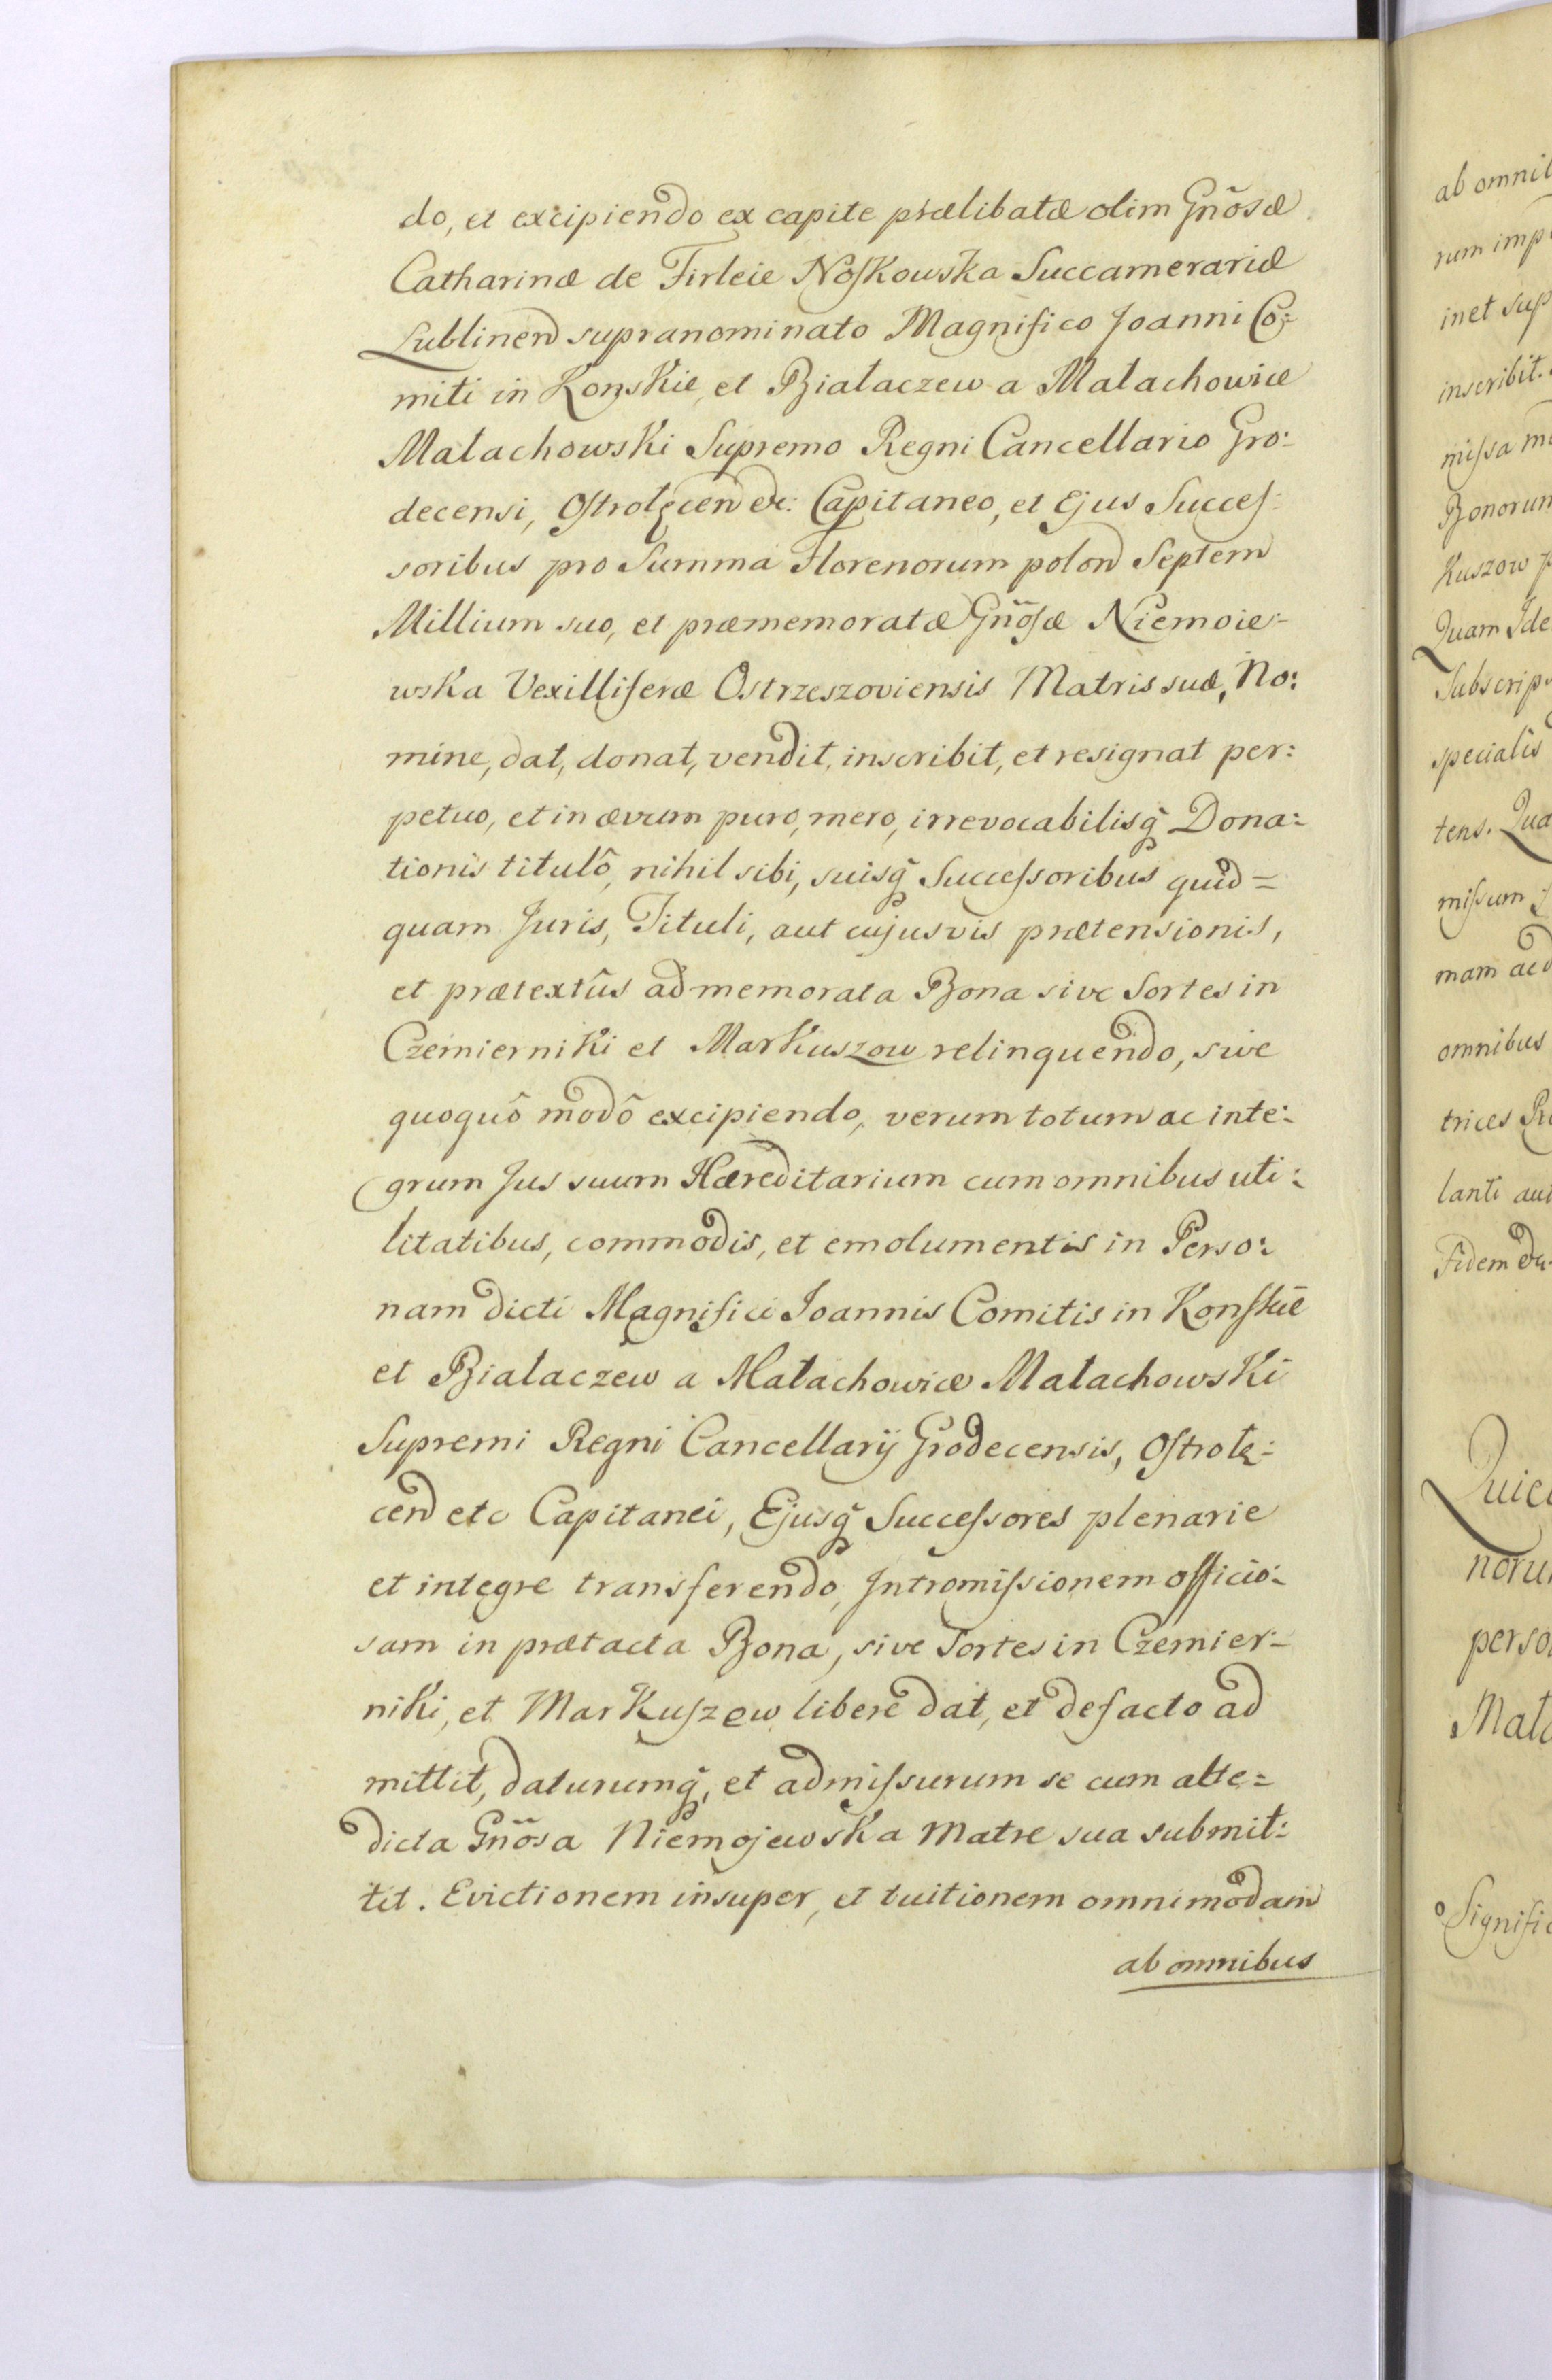 do, et excipiendo ex capite prælibatæ olim Gñosæ
Catharinæ de Firleie Noſkowska Succamerariæ
Lublinen supranominato Magnifico Joanni Co:
miti in Konskie, et Białaczew a Małachowice
Małachowski Supremo Regni Cancellario Gro:
decensi, Oſtrołęcen &c: Capitaneo, et Ejus Succeſ:
soribus pro Summa Florenorum polon Septem
Millium suo, et præmemoratæ Gñoſæ Niemoie:
wska Vexilliferæ Ostrzeszoviensis Matris suæ, No:
mine, dat, donat, vendit, inscribit, et resignat per:
petuo, et in ævum puro, mero, irrevocabilisq̃ Dona:
tionis titulô, nihil sibi, suisq̃ Succeſsoribus quid=
quam Juris, Tituli, aut cujusvis prætensionis,
et prætextûs ad memorata Bona sive Sortes in
Czemierniki et Markuszow relinquendo, sive
quoquô modô excipiendo, verum totum ac inte:
grum Jus suum Hæreditarium cum omnibus uti:
litatibus, commodis, et emolumentis in Perso:
nam dicti Magnifici Joannis Comitis in Konſkie
et Białaczew a Małachowice Małachowski
Supremi Regni Cancellarij Grodecensis, Oſtrołę:
cen etc Capitanei, Ejusq̃ Succeſsores plenarie
et integre transferendo, Intromiſsionem officio:
sam in prætacta Bona, sive Sortes in Czemier:
niki, et Markuſzew libere dat, et defacto ad
mittit, daturumq̃, et admiſsurum se cum alte=
dicta Gñosa Niemojewska Matre sua submit:
tit. Evictionem insuper, et tuitionem omnimodam
ab omnibus
ab omnib
rum imp
inet sup
inscribit.
miſsa m
Bonorum
Kuszow
Quam Ide
Subscrip
specialis
tens. Qua
miſsum
mam ac
omnibus
trices
lanti au
Fidem
norum
perso
Mała
Signific